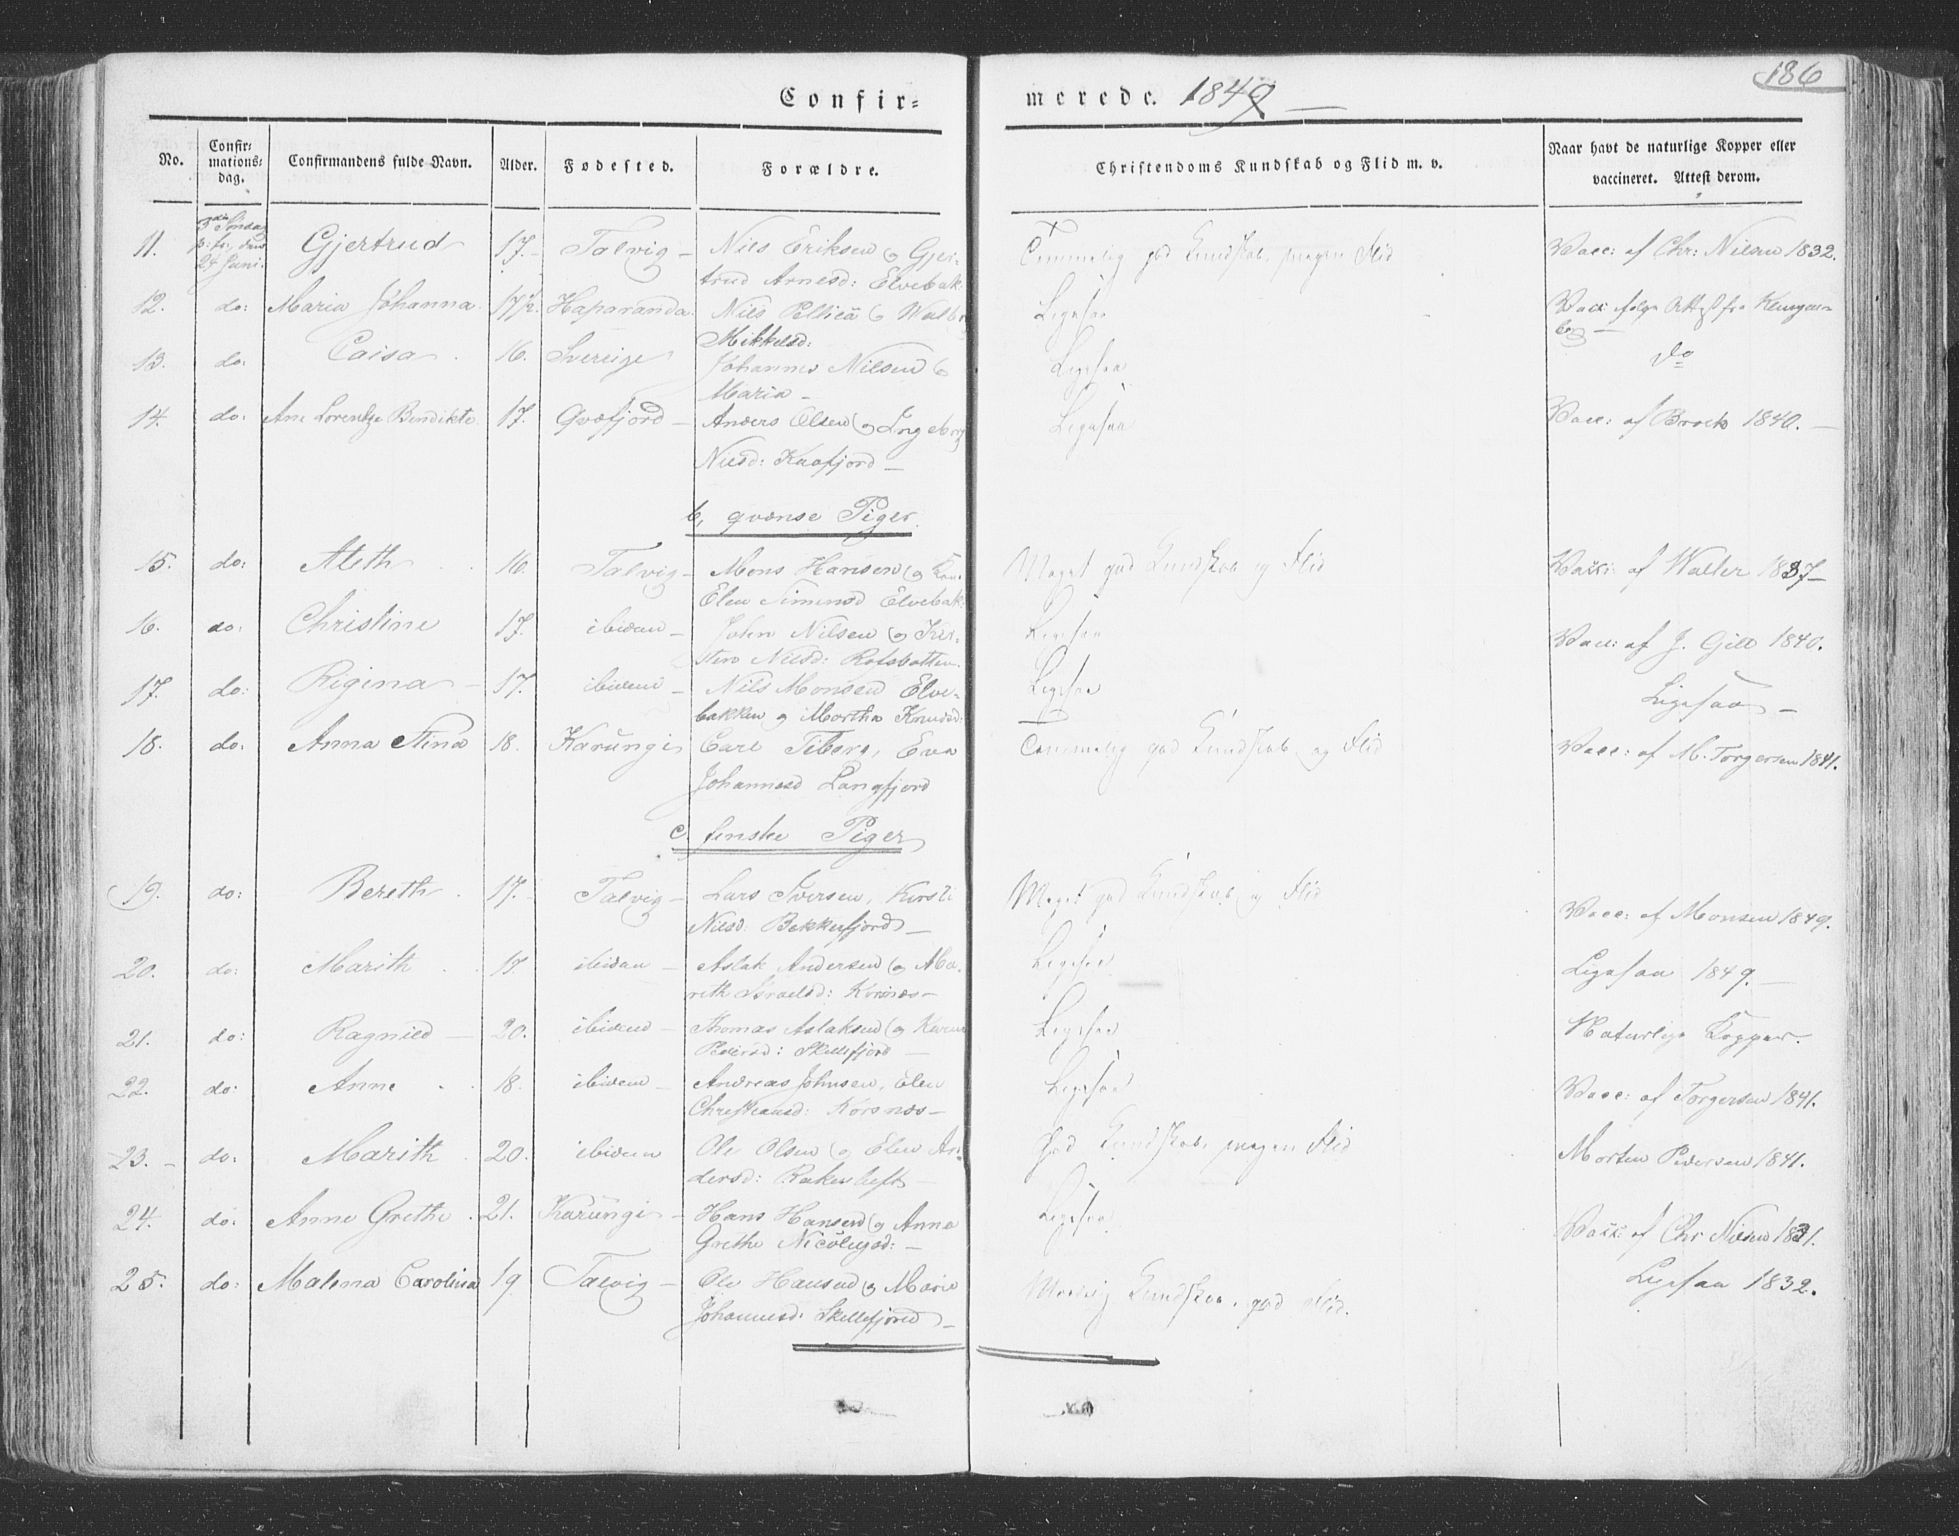 186
Confir= merede. 1849
No.
Confir=
mations=
dag.
Confirmandens fulde Navn.
Alder.
Fødested.
Forældre.
Christendoms Kundskab og Flid m. v.
Naar havt de naturlige Kopper eller
vaccineret. Attest derom.
11. 3die Søndag p: tr: den 24 Juni. Gjertrud 17. Talvig Nils Eriksen og Gjer- Temmelig god Kundskab, megen Flid Vacc: af Chr: Nilsen 1832.
trud Arnesd: Elvebak
12. do: Maria Johanna 17½. Haparanda Nils Pellicä & Walb Ligesaa Vacc: ifølge Attest fra
Mikkelsd:
13. do: Caisa 16. Sverige Johannes Nilsen & Ligesaa do
Maria
14. do: Ane Lorentze Benedikte 17. Qvæfjord Anders Olsen og Ingeborg Ligesaa Vacc: af Brock 1840.
Nilsd: Kaafjord
b, qvænse Piger
15. do: Aleth 16. Talvig Mons Hansen og Meget god Kundskab og Flid Vacc: af Waller 1837
Elen Simensd Elvebak
16. do: Christine 17. ibidem John Nilsen og Kir- Ligesaa Vacc: af J. Gill 1840.
sten Nilsd: Rafsbotten.
17. do: Rigina 17. ibidem Nils Monsen Elve- Ligesaa Ligesaa
bakken og Martha Knudsd:
18. do: Anna Stina 18. Karungi Carl Tiberg, Eva Temmelig god Kundskab og Flid Vacc: af M. Torgersen 1841.
Johannesd Langfjord
c. finske Piger
19. do: Bereth 17. Talvig Lars Iversen, Kirsti Meget god Kundskab og Flid Vacc: af Monsen 1849.
Nilsd: Bekkerfjord
20. do: Marith 17. ibidem Aslak Andersen og Ma- Ligesaa Ligesaa 1849.
rith Israelsd: Korsnæs
21. do: Ragnild 20. ibidem Thomas Aslaksen og Karen Ligesaa Naturlige Kopper.
Pedersd: Skillefjord
22. do: Anne 18. ibidem Andreas Johnsen, Elen Ligesaa Vacc: af Torgersen 1841.
Christiansd: Korsnæs
23. do: Marith 20. ibidem Ole Olsen og Elen An- God Kundskab, megen Flid Morten Pedersen 1841.
dersd:
24. do: Anne Grethe 21. Karungi Hans Hansen og Anna Ligesaa Vacc: af Chr Nilsen 1831.
Grethe
25. do: Malena Carolina 19. Talvig Ole Hansen og Marie Maadelig Kundskab, god Flid. Ligesaa 1832.
Johannesd: Skillefjord